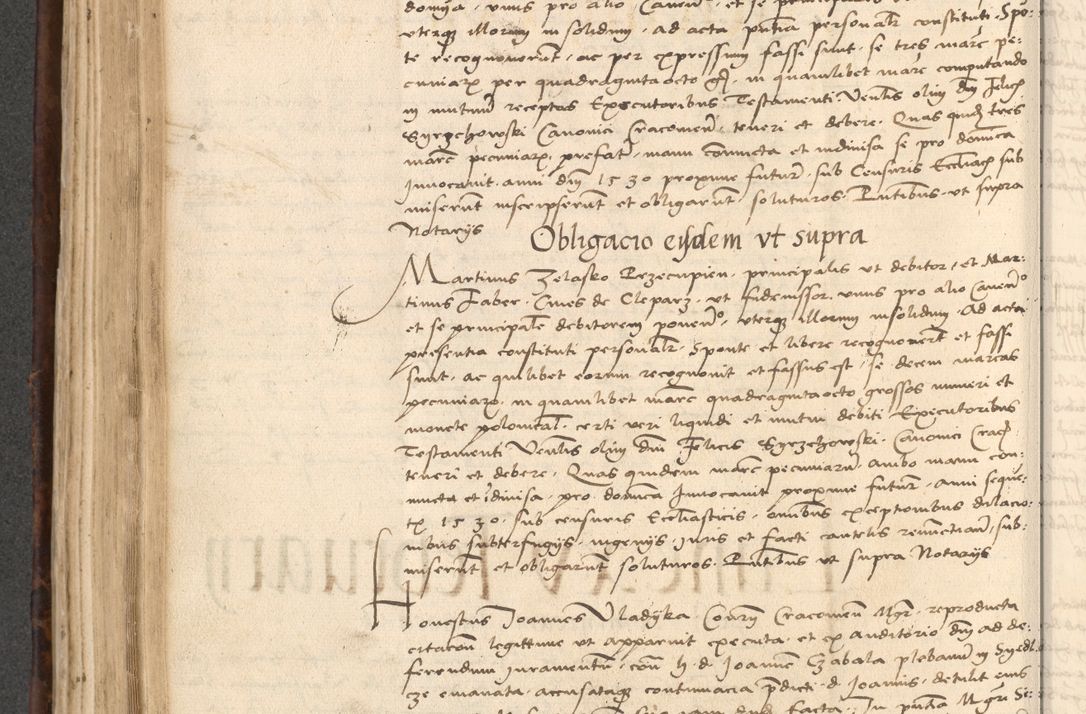 uterq3 illorum in solidum · ad acta pntia personalr constituti · Spo-
te recognoverunt · ac per expressum fassi sunt · se tres marc pe-
cuniarz per quadragintaocto gr · in quamlibet marc computando
in mutuum receptas Executoribus Testamenti · Venlis olim dm Felic
Syrzchowski Canonici Cracovien · teneri et debere · Quas quid tres
marc pecuniarz · prefat · manu coniuncta et indivisa se pro domica
Invocavit · anni dm 1530 proxime futur · sub Censuris Eccliacs sub
miserunt inscripserunt et obligarunt · soluturos · Pntibus · ut supra
Notarijs
Obligacio eisdem ut supra
Martinus Zelasko Przecupien · principalis ut debitor · et Mar:
tinus Faber · Cives de Cleparz · ut fideiussor · unus pro alio Caven
et se principale debitorem ponen · uterq3 illorum insolidum · Ad acta
presentia constituti personalr · Sponte et libere recognoverunt et fassi
sunt · ac quilibet eorum recognovit et fassus est · se decem marcas
pecuniarz · in quamlibet marc quadragintaocto grossos numeri et
monete polonical · certi veri liquidi et mutui debiti · Executoribus
Testamenti Venlis olim dm Felicis Syrzchowski · Canonici Crac
teneri et debere · Quas quidem marc pecuniarum · ambo manu con:
iuncta et idivisa · pro domica Invocavit proxime futur · anni seque:
tz 1530 · sub censuris Eccliasticis · omibus exceptionibus dilacio:
nibus subterfugijs · ingenijs · iuris et facti cautelis renuctiand · sub:
miserunt et obligarunt soluturos · Pntibus ut supra Notarijs
Honestus Joannes Vladyka · Coram Cracovien Mgr · reproducta
citacon legittime ut apparuit executa · et ex auditorio dm ad de:
ferendum iuramentum · con h · d · Joannem Gabala plebanum in Syedl:
cze emanata · accusataq3 contumacia pdicti · d · Joannis · detulit eius